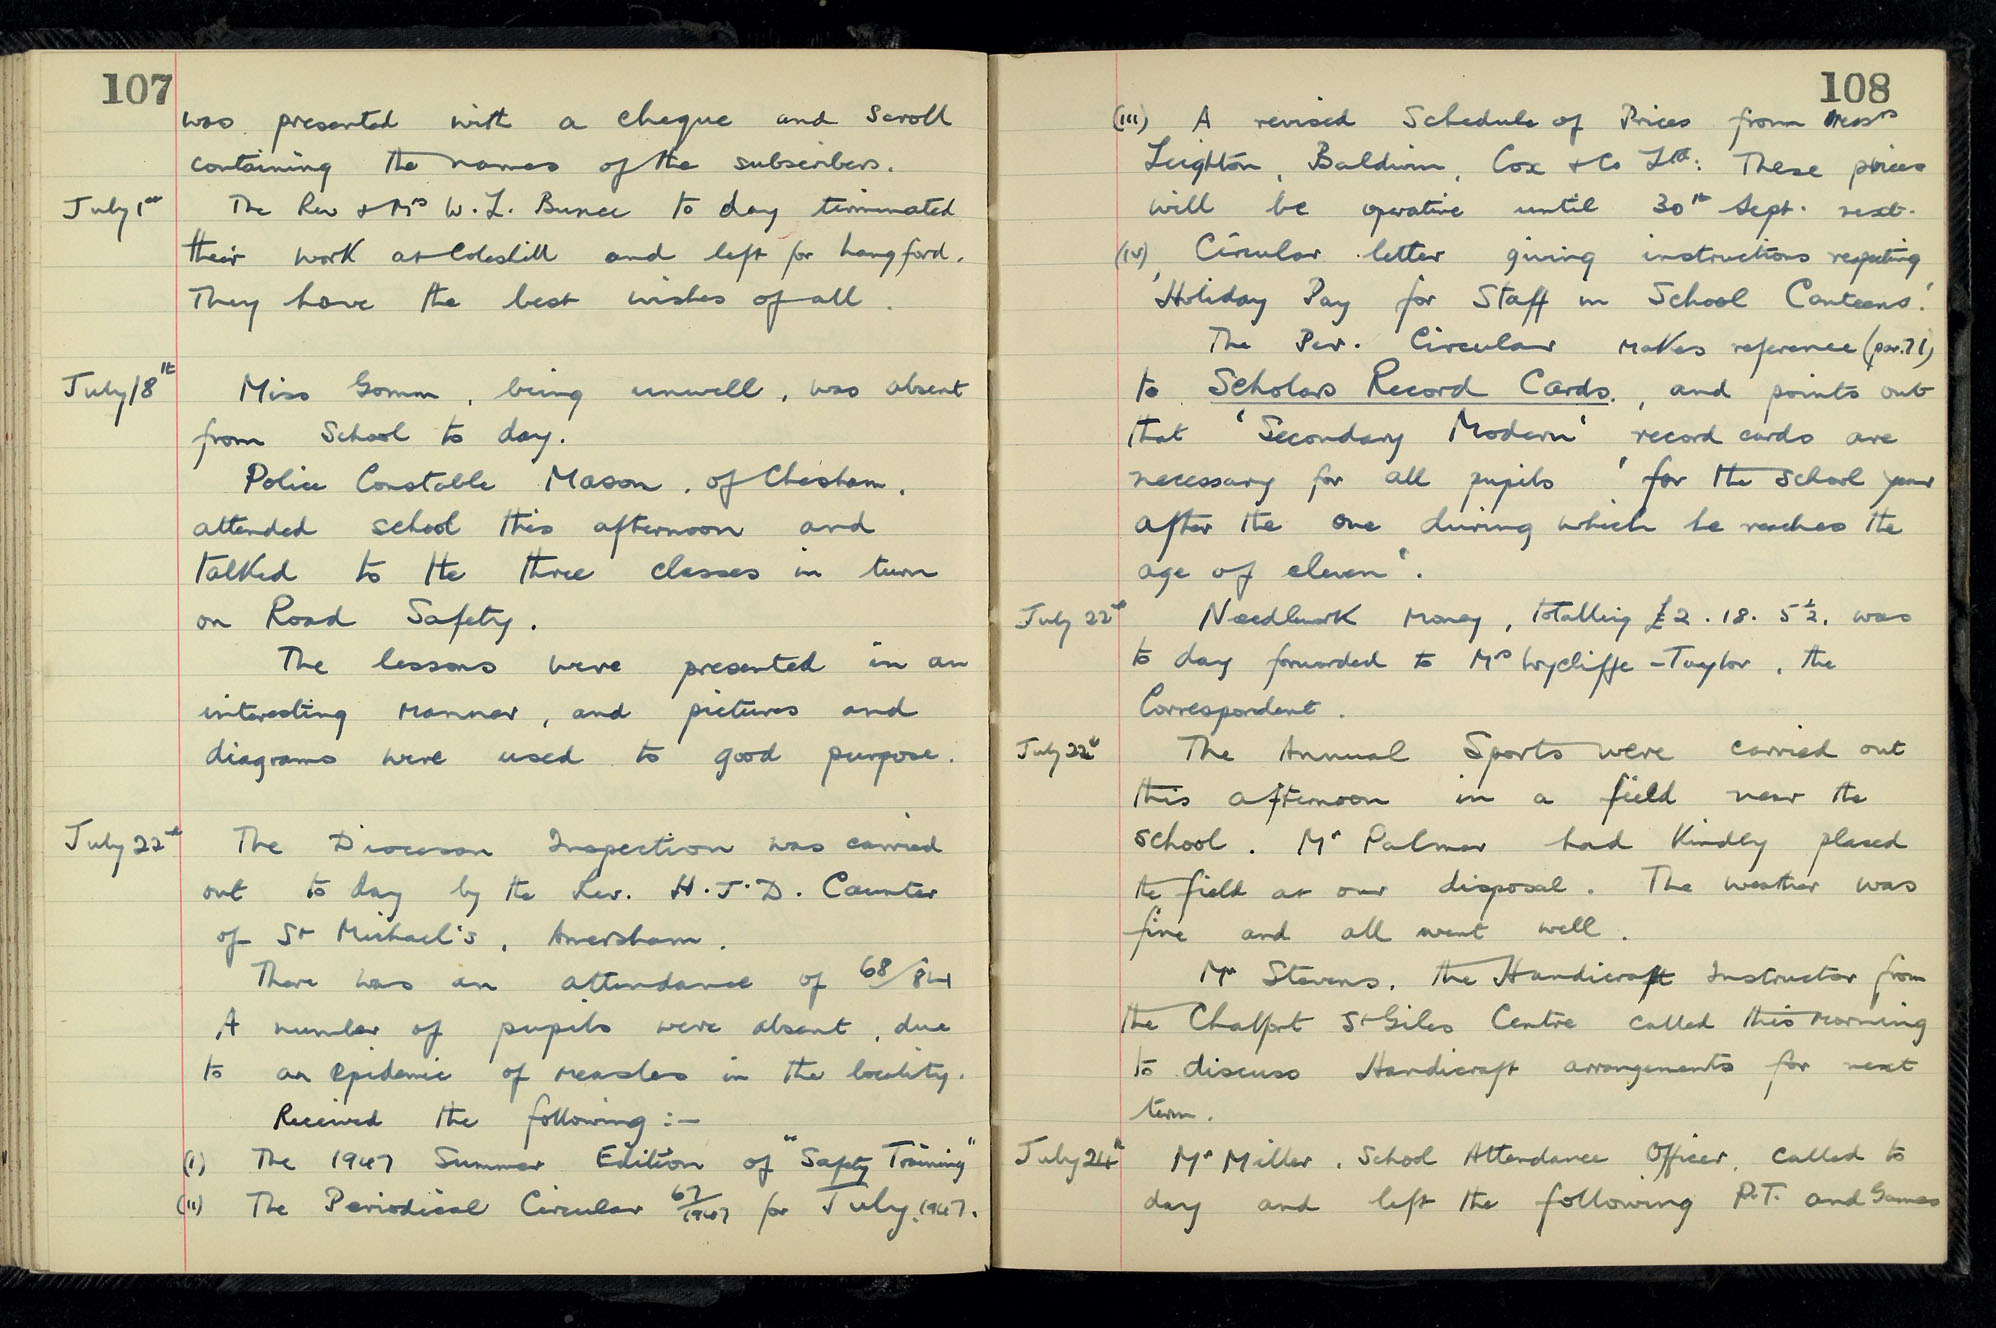 107
was presented with a cheque and scroll
containing the names of the subscribers.
July 1st The Rev & Mrs W. L. Bunce to day terminated
their work at Coleshill and left for Langford.
They have the best wishes of all.
July 18th Miss Gomm, being unwell, was absent
from School to day.
Police Constable Mason, of Chesham,
attended school this afternoon and
talked to the three classes in turn
on Road Safety.
The lessons were presented in an
interesting manner, and pictures and
diagrams were used to good purpose.
July 22nd The Diocesan Inspection was carried
out to day by the Rev. H. J. D. Caunter
of St Michael's, Amersham.
There was an attendance of 68/84
A number of pupils were absent, due
to an epidemic of measles in the locality.
Received the following :-
(I) The 1947 Summer Edition of "Safety Training"
(II) The Periodical Circular 67/1947 for July, 1947.
108
(III) A revised Schedule of Prices from Messrs
Leighton, Baldwin, Cox & Co Ltd: These prices
will be operative until 30th Sept. next.
(IV) Circular letter giving instructions respecting
'Holiday Pay for Staff in School Canteens.'
The Per. Circular makes reference (par. 71)
to Scholars Record Cards, and points out
that 'Secondary Modern' record cards are
necessary for all pupils 'for the school year
after the one during which he reaches the
age of eleven'.
July 22nd Needlework Money, totalling £2. 18. 5½, was
to day forwarded to Mrs Wycliffe-Taylor, the
Correspondent.
July 22nd The Annual Sports were carried out
this afternoon in a field near the
school. Mr Palmer had kindly placed
the field at our disposal. The weather was
fine and all went well.
Mr Stevens, the Handicraft Instructor from
the Chalfont St Giles Centre called this morning
to discuss Handicraft arrangements for next
term.
July 24th Mr Miller, School Attendance Officer, called to
day and left the following P.T. and Games